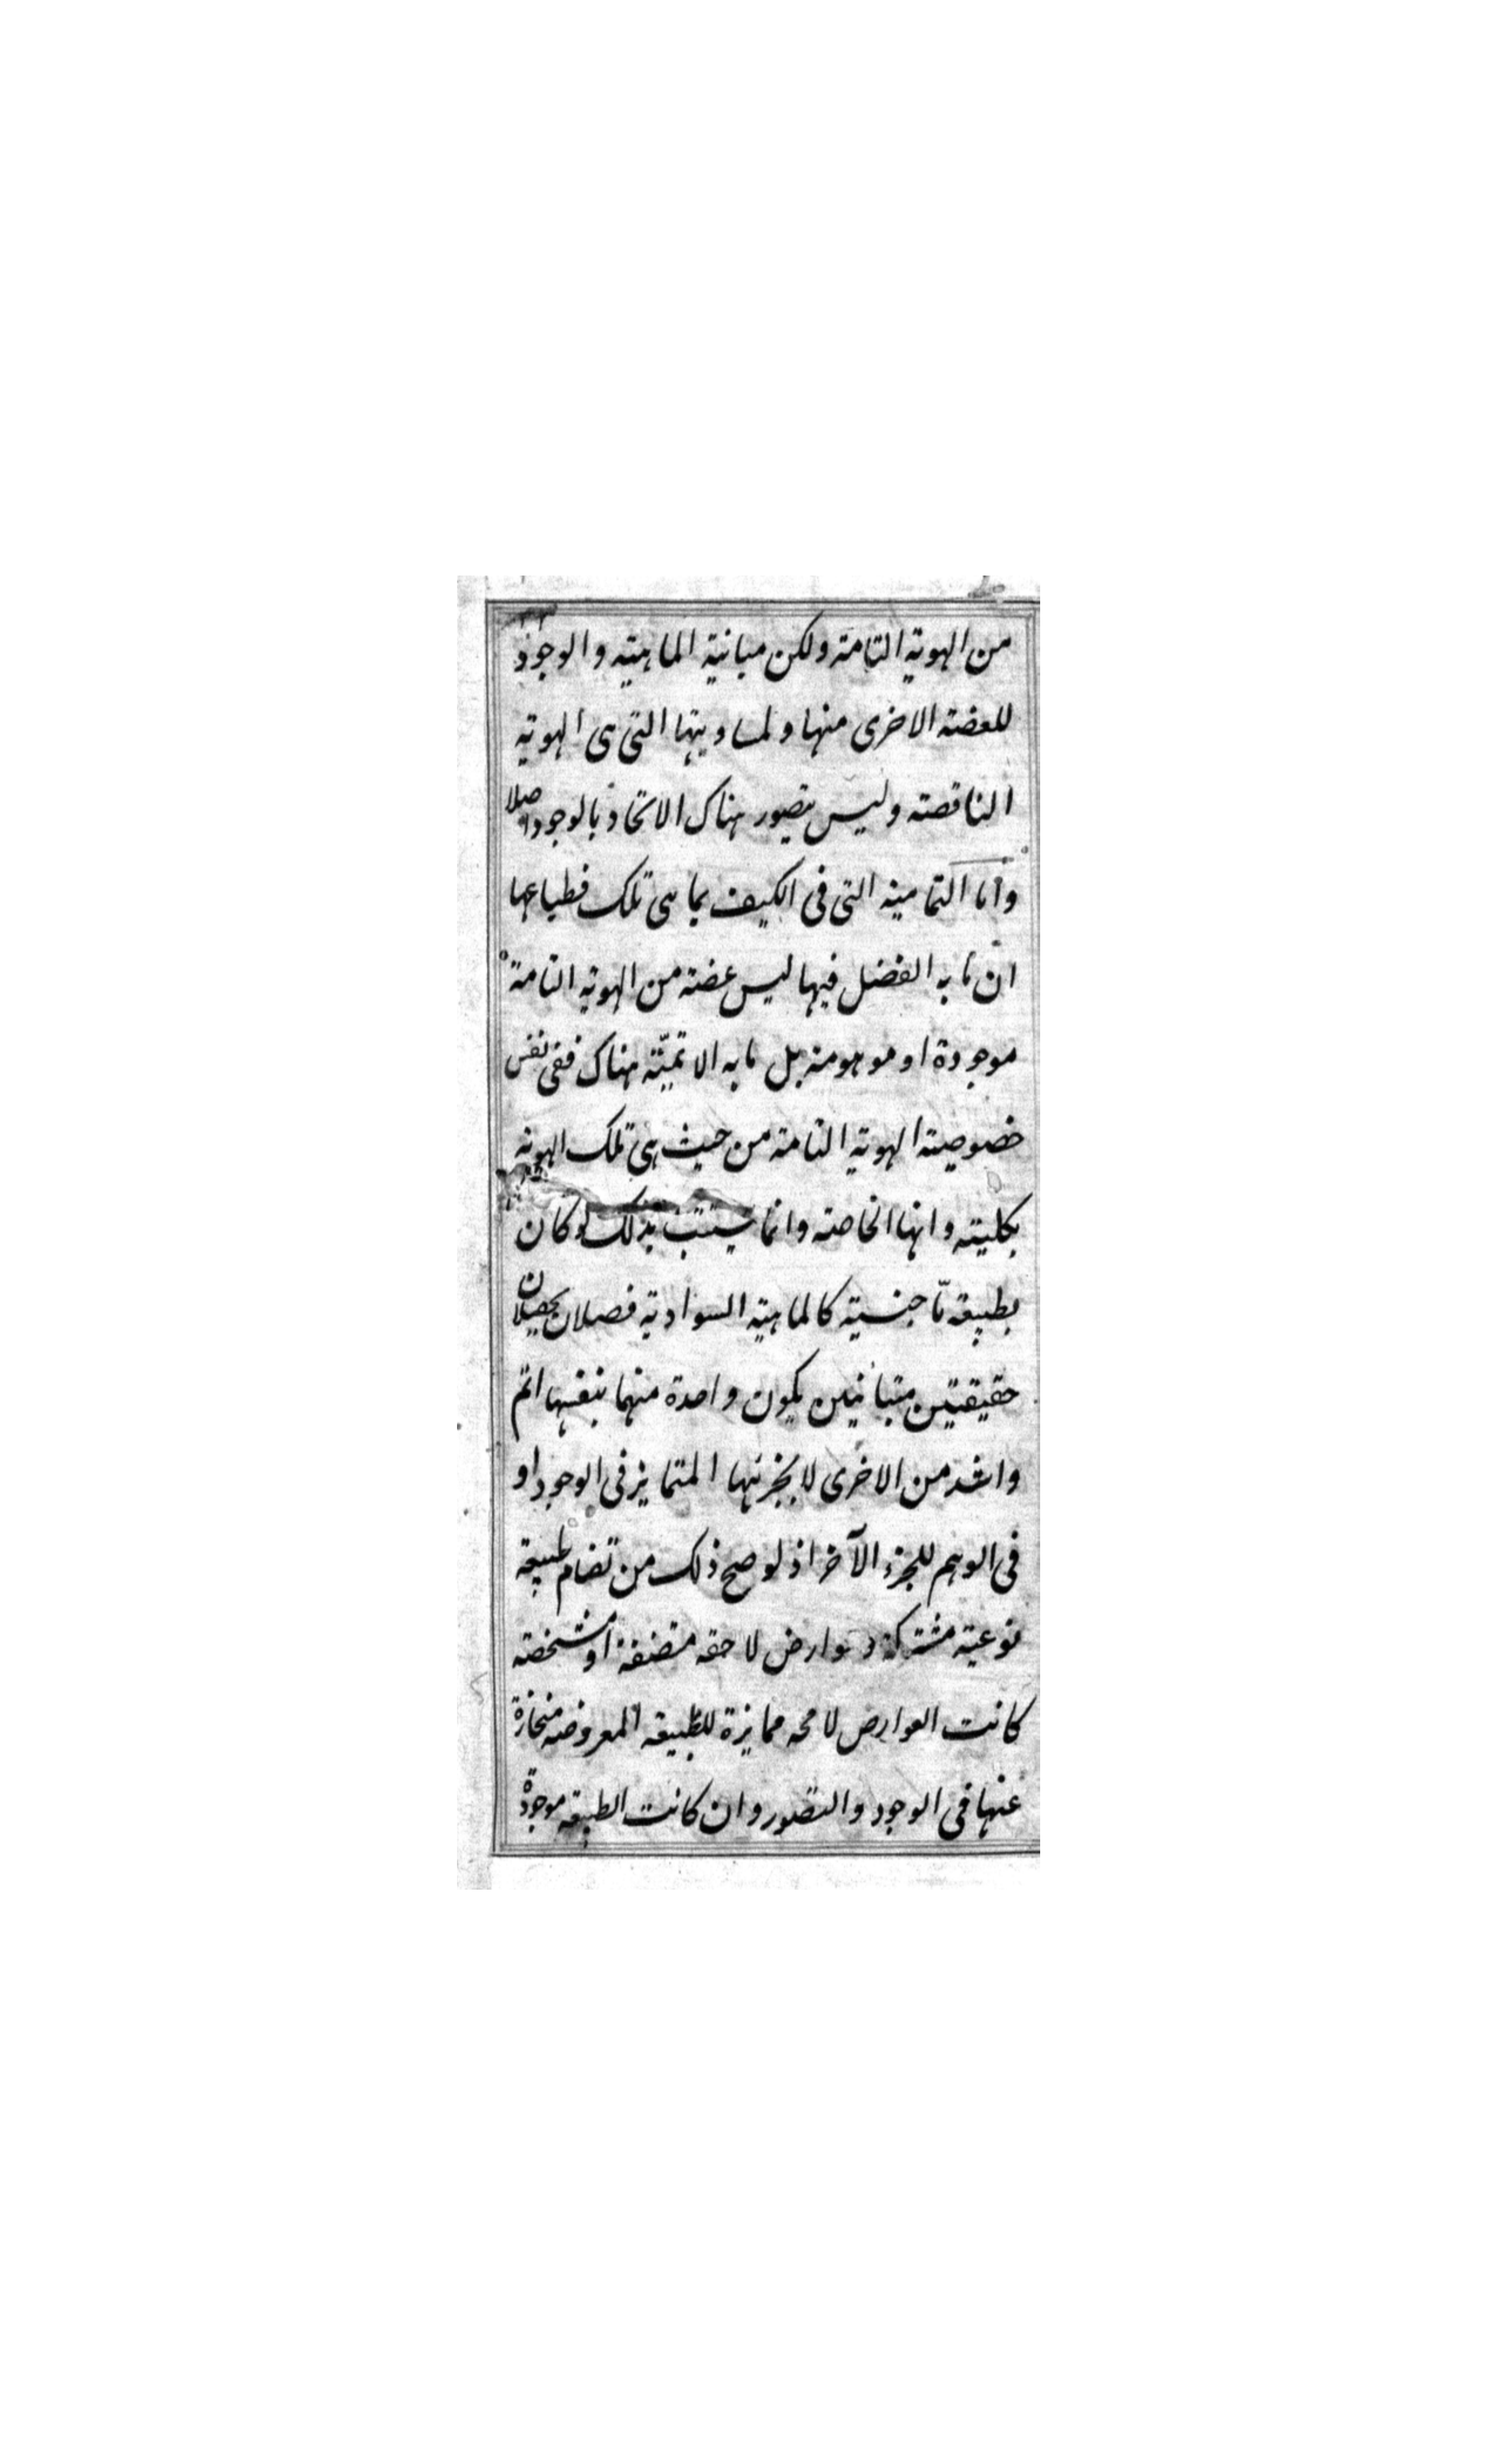 من الهوية التامة ولكن مباينة الماهية والوجود
للعضة الاخرى منها ولمساويتها التى هى الهوية
الناقصة وليس يتصور هناك الاتحاد بالوجود اصلا
واما التمامية التى فى الكيف بما هى تلك فطباعها
ان ما به الفضل فيها ليس عضة من الهوية التامة
موجودة او موهومة بل ما به الاتمية هناك ففى نفس
خصوصية الهوية التامة من حيث هى تلك الهوية
بكليته وانها الخاصة وانما يستتب بذلك لو كان
بطبيعة ما جنسية كالماهية السوادية فصلان يحصلان
حقيقتين متباينين يكون واحدة منهما بنفسها اتم
واشد من الاخرى لا بجزئها المتمايز فى الوجود او
فى الوهم للجزء الآخر اذ لو صح ذلك من تضام طبيعة
نوعية مشتركة وعوارض لاحقة مصنفة او مشخصة
كانت العوارض لا محه ممايزة للطبيعة المعروضة منحازة
عنها فى الوجود والتصور وان كانت الطبيعة موجودة